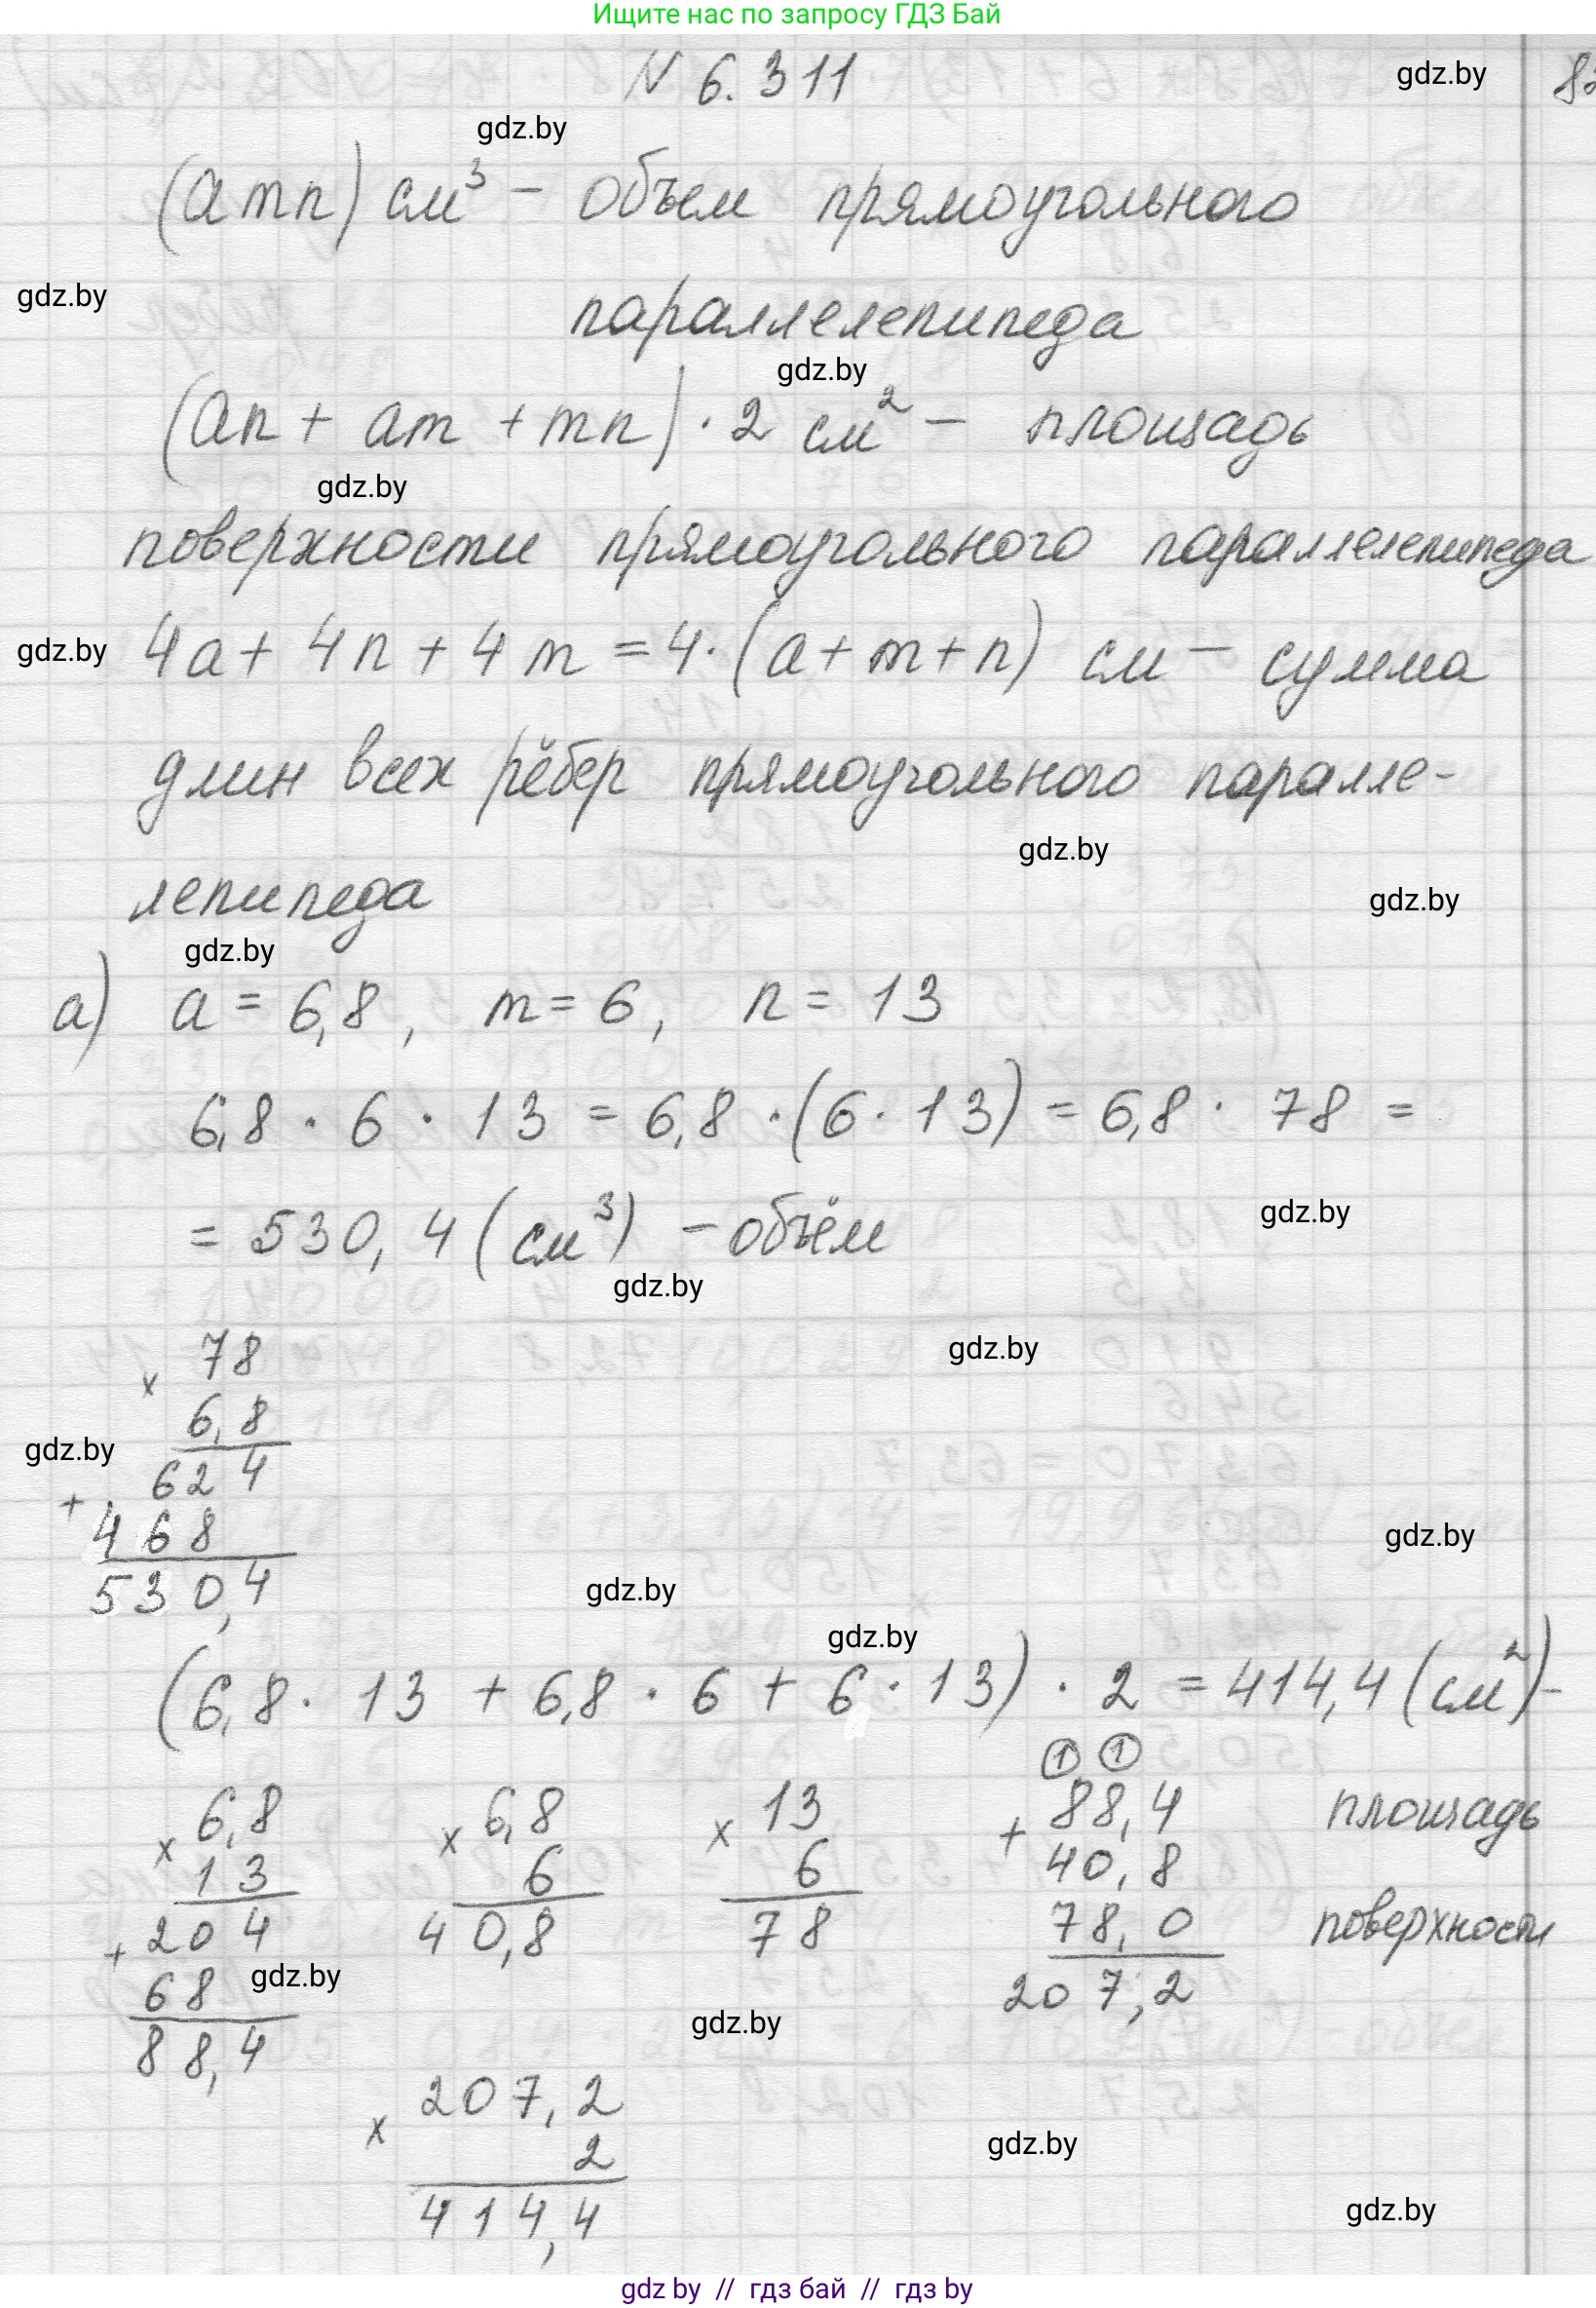 Ищите нас по запросу ГДЗ Бай
N 6.311
gdz.by
82
gdz.by
(amn) см³ - объем прямоугольного
gdz.by
параллелепипеда
gdz.by
(an + am + mn) · 2 см² - площадь
gdz.by
поверхности прямоугольного параллелепипеда
gdz.by
4a + 4n + 4m = 4 · (a + m + n) см - сумма
длин всех рёбер прямоугольного паралле-
gdz.by
лепипеда
gdz.by
gdz.by
а) a = 6,8, m = 6, n = 13
6,8 · 6 · 13 = 6,8 · (6 · 13) = 6,8 · 78 =
= 530,4 (см³) - объём
gdz.by
gdz.by
gdz.by
x 78
6,8
gdz.by
624
+ 468
gdz.by
530,4
gdz.by
gdz.by
(6,8 · 13 + 6,8 · 6 + 6 · 13) · 2 = 414,4 (см²) -
1 1
x 6,8 x 6,8 x 13 + 88,4 площадь
13 6 6 40,8
+ 204 40,8 78 78,0 поверхности
68 207,2
gdz.by
gdz.by
88,4
x 207,2
2
gdz.by
414,4
gdz.by
gdz by // гдз бай // гдз by